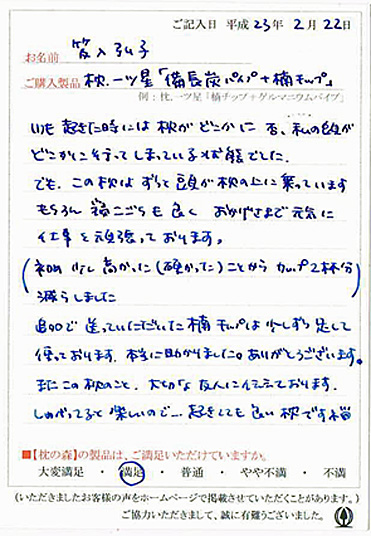 ご記入日 平成23年 2月 22日
お名前
ご購入製品 枕.一ツ星「備長炭パイプ+楠チップ」
例：枕.一ツ星「楠チップ+ゲルマニウムパイプ」
いつも 起きた時には 枕が どこかに 否、私の頭が
どこかに行ってしまっている状態でした.
でも、この枕は ずっと 頭が枕の上に乗っています
もちろん 寝ごこちも良く おかげさまで元気に
仕事を頑張っております。
(初め 少し高かった(硬かった)ことから カップ2杯分
減らしました
追加で 送っていただいた 楠チップは少しずつ足して
使っております. 本当に助かりました。ありがとうございます。
またこの枕のこと、大切な友人に伝えております.
しゃべってると楽しいので… 起きてても良い枕です
■【枕の森】の製品は、ご満足いただけていますか。
大変満足 ・ 満足 ・ 普通 ・ やや不満 ・ 不満
(いただきましたお客様の声をホームページで掲載させていただくことがあります。)
ご協力いただきまして、誠に有難うございました。